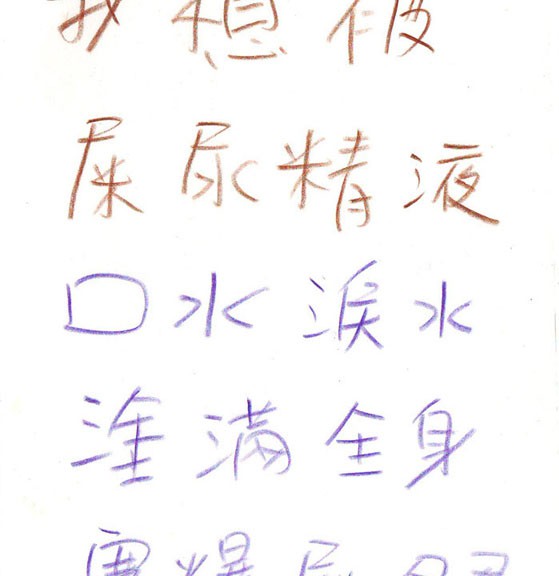 我想被
屎尿精液
口水淚水
塗滿全身